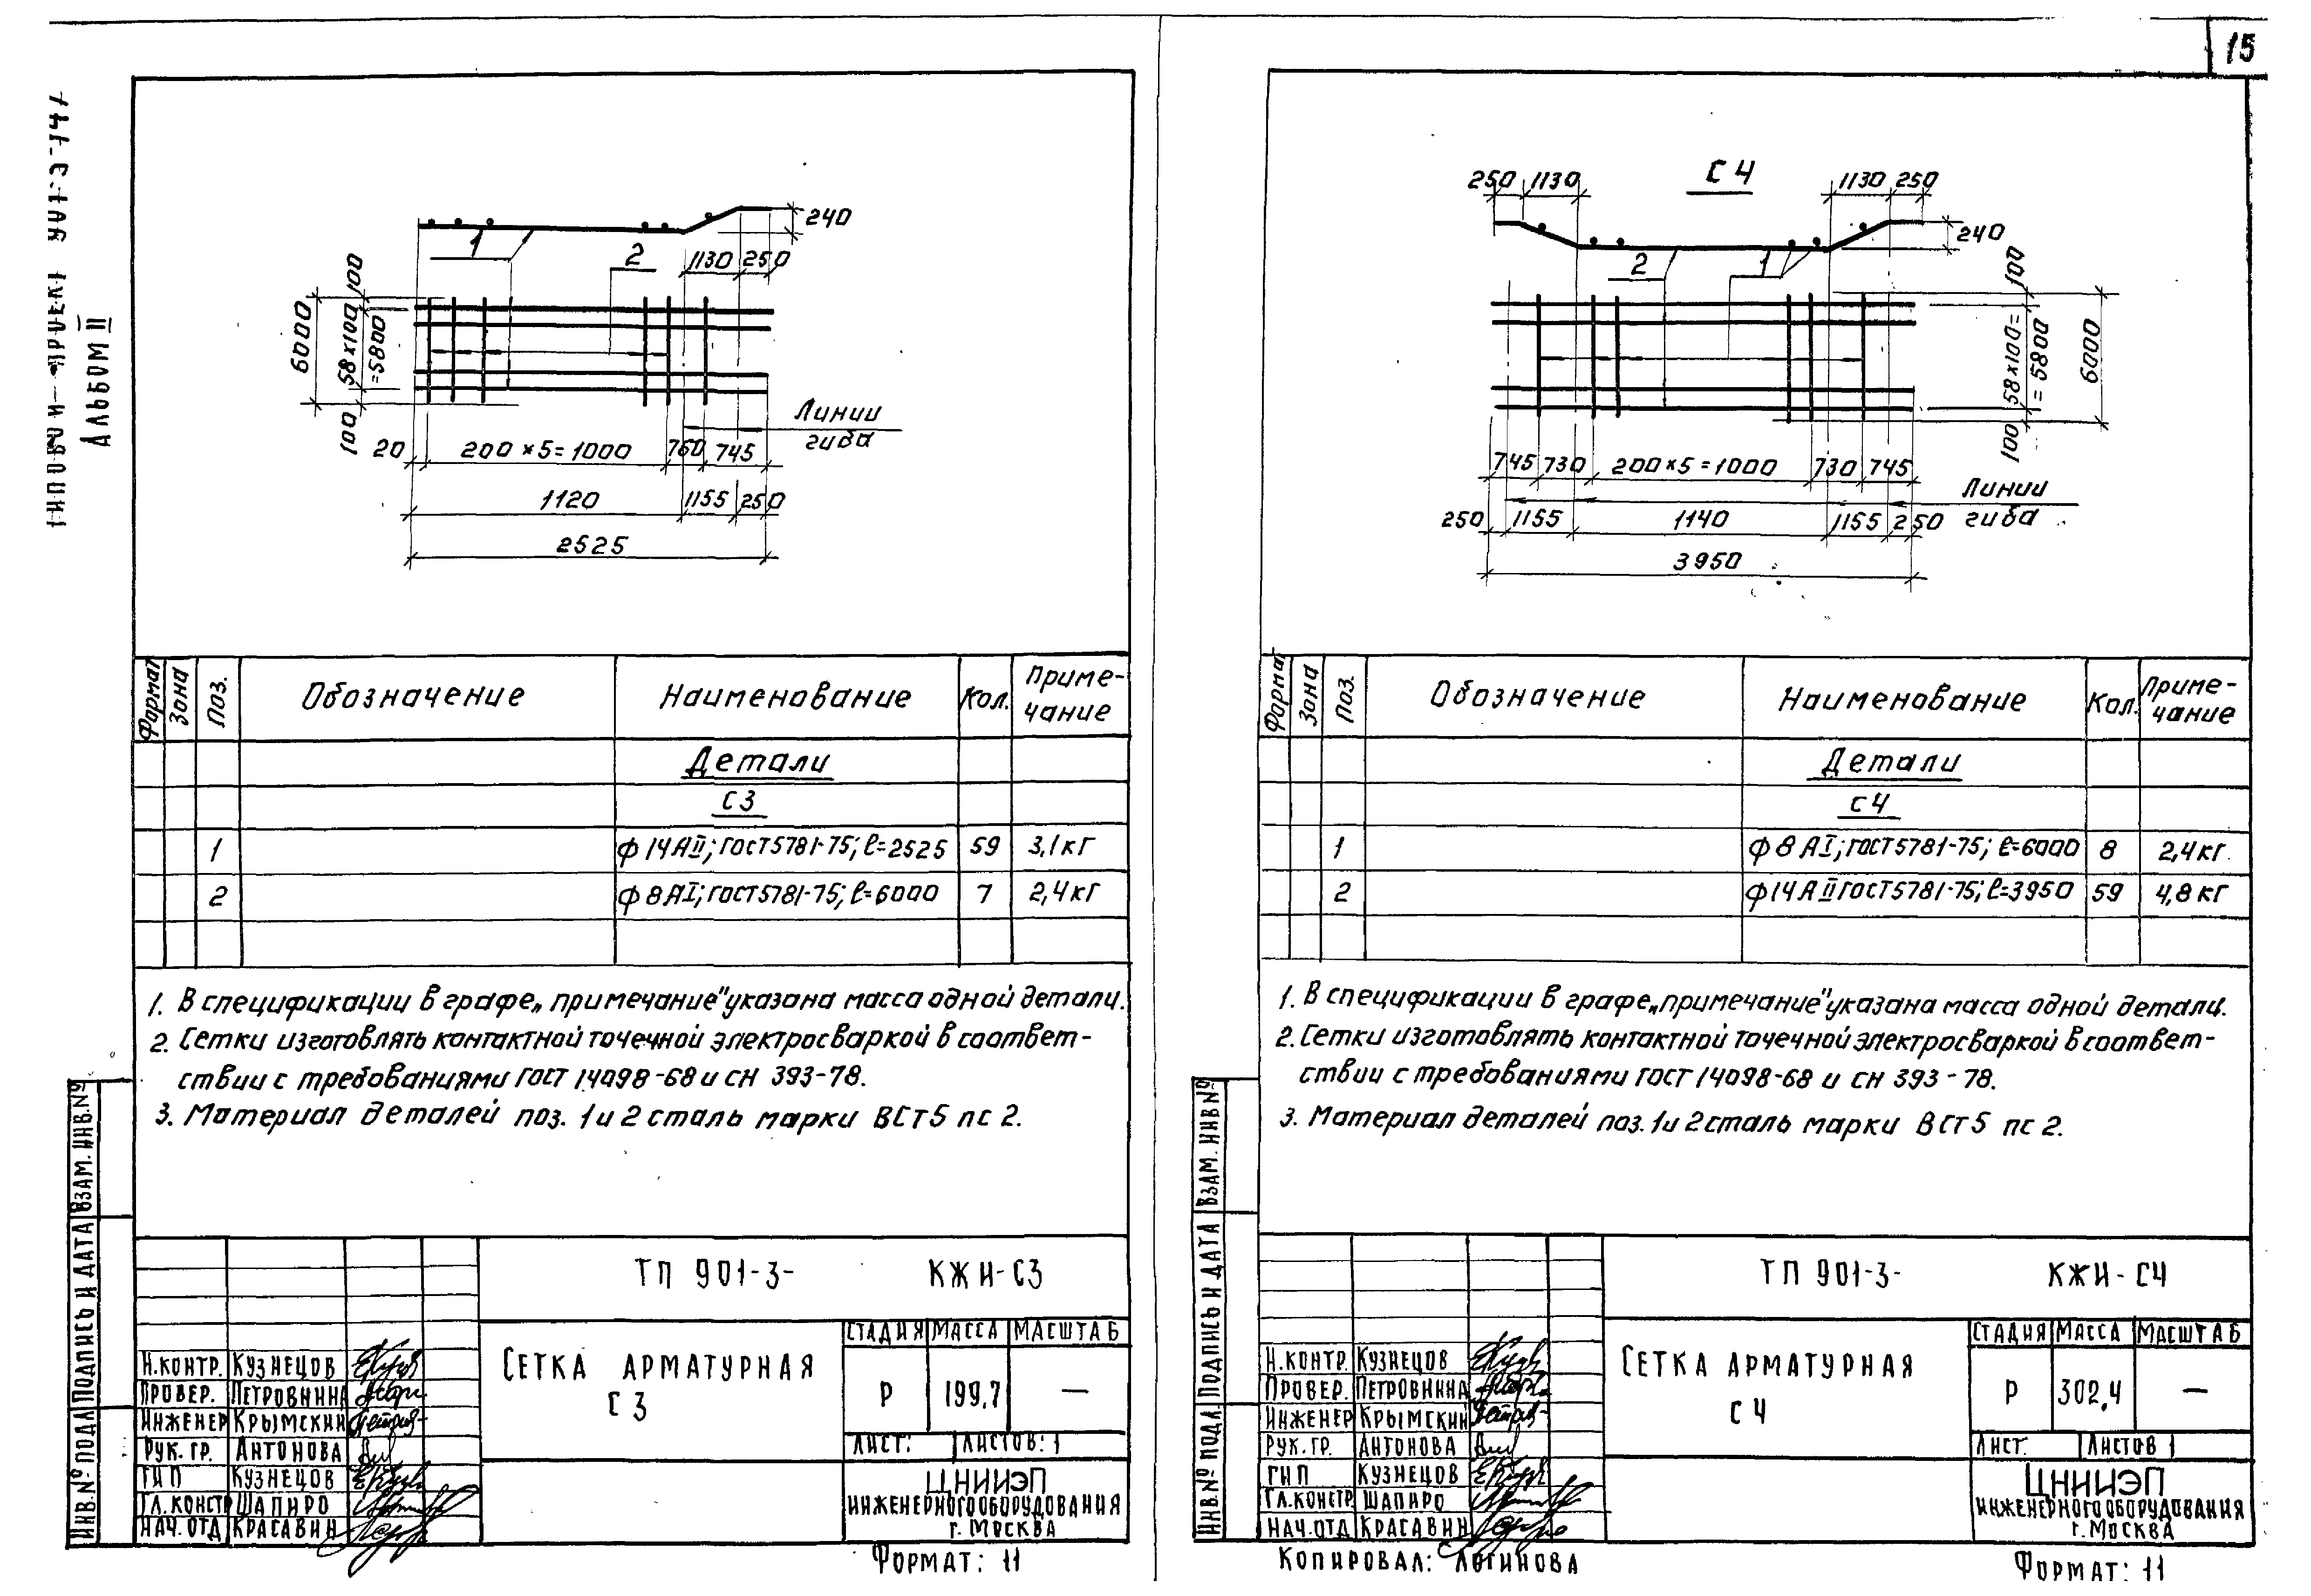 15
ТИПОВОЙ ПРОЕКТ 901-3-147
АЛЬБОМ II
240
1
2
1130 250
100
58×100
=5800
6000
100
Линии
гиба
20 200×5=1000 760 745
1120 1155 250
2525
Формат Зона Поз. Обозначение Наименование Кол. Приме-
чание
Детали
С3
1 ф14АII; ГОСТ5781-75; ℓ=2525 59 3,1кг
2 ф8АI; ГОСТ5781-75; ℓ=6000 7 2,4кг
1. В спецификации в графе „примечание" указана масса одной детали.
2. Сетки изготовлять контактной точечной электросваркой в соответ-
ствии с требованиями ГОСТ 14098-68 и СН 393-78.
3. Материал деталей поз. 1 и 2 сталь марки ВСт5 пс 2.
ИНВ.№ ПОДЛ ПОДПИСЬ И ДАТА ВЗАМ. ИНВ.№
ТП 901-3- КЖИ-С3
СТАДИЯ МАССА МАСШТАБ
СЕТКА АРМАТУРНАЯ
С3
Р 199,7 —
ЛИСТ: ЛИСТОВ: 1
Н.КОНТР. КУЗНЕЦОВ
ПРОВЕР. ПЕТРОВНИНА
ИНЖЕНЕР КРЫМСКИЙ
РУК. ГР. АНТОНОВА
ГИП КУЗНЕЦОВ
ГЛ.КОНСТР ШАПИРО
НАЧ.ОТД КРАСАВИН
ЦНИИЭП
ИНЖЕНЕРНОГО ОБОРУДОВАНИЯ
г. МОСКВА
ФОРМАТ: 11
С4
250 1130 1130 250
240
2
1
100
58×100=
=5800
6000
100
745 730 200×5=1000 730 745
Линии
гиба
250 1155 1140 1155 250
3950
Формат Зона Поз. Обозначение Наименование Кол. Приме-
чание
Детали
С4
1 ф8АI; ГОСТ5781-75; ℓ=6000 8 2,4кг
2 ф14АII ГОСТ5781-75; ℓ=3950 59 4,8кг
1. В спецификации в графе „примечание" указана масса одной детали.
2. Сетки изготовлять контактной точечной электросваркой в соответ-
ствии с требованиями ГОСТ 14098-68 и СН 393-78.
3. Материал деталей поз. 1 и 2 сталь марки ВСт5 пс 2.
ИНВ.№ ПОДЛ. ПОДПИСЬ И ДАТА ВЗАМ. ИНВ№
ТП 901-3- КЖИ-С4
СТАДИЯ МАССА МАСШТАБ
СЕТКА АРМАТУРНАЯ
С4
Р 302,4 —
ЛИСТ: ЛИСТОВ 1
Н.КОНТР. КУЗНЕЦОВ
ПРОВЕР. ПЕТРОВНИНА
ИНЖЕНЕР КРЫМСКИЙ
РУК. ГР. АНТОНОВА
ГИП КУЗНЕЦОВ
ГЛ.КОНСТР ШАПИРО
НАЧ.ОТД КРАСАВИН
ЦНИИЭП
ИНЖЕНЕРНОГО ОБОРУДОВАНИЯ
г. МОСКВА
КОПИРОВАЛ: ЛОГИНОВА
ФОРМАТ: 11